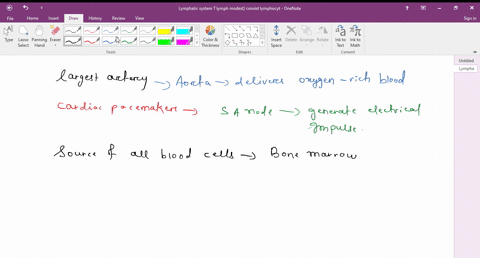 Lymphatic system T lymph nodes( consist lymphocyt - OneNote
File Home Insert Draw History Review View
Sign in
Type Lasso Select Panning Hand Eraser
Color & Thickness
Insert Space Delete Arrange Rotate
Ink to Text Ink to Math
Tools Shapes Edit Convert
Untitled
Lympha
largest artery → Aorta → delivers oxygen-rich blood
Cardiac pacemakers → SA node → generate electrical
Impulse.
Source of all blood cells → Bone marrow